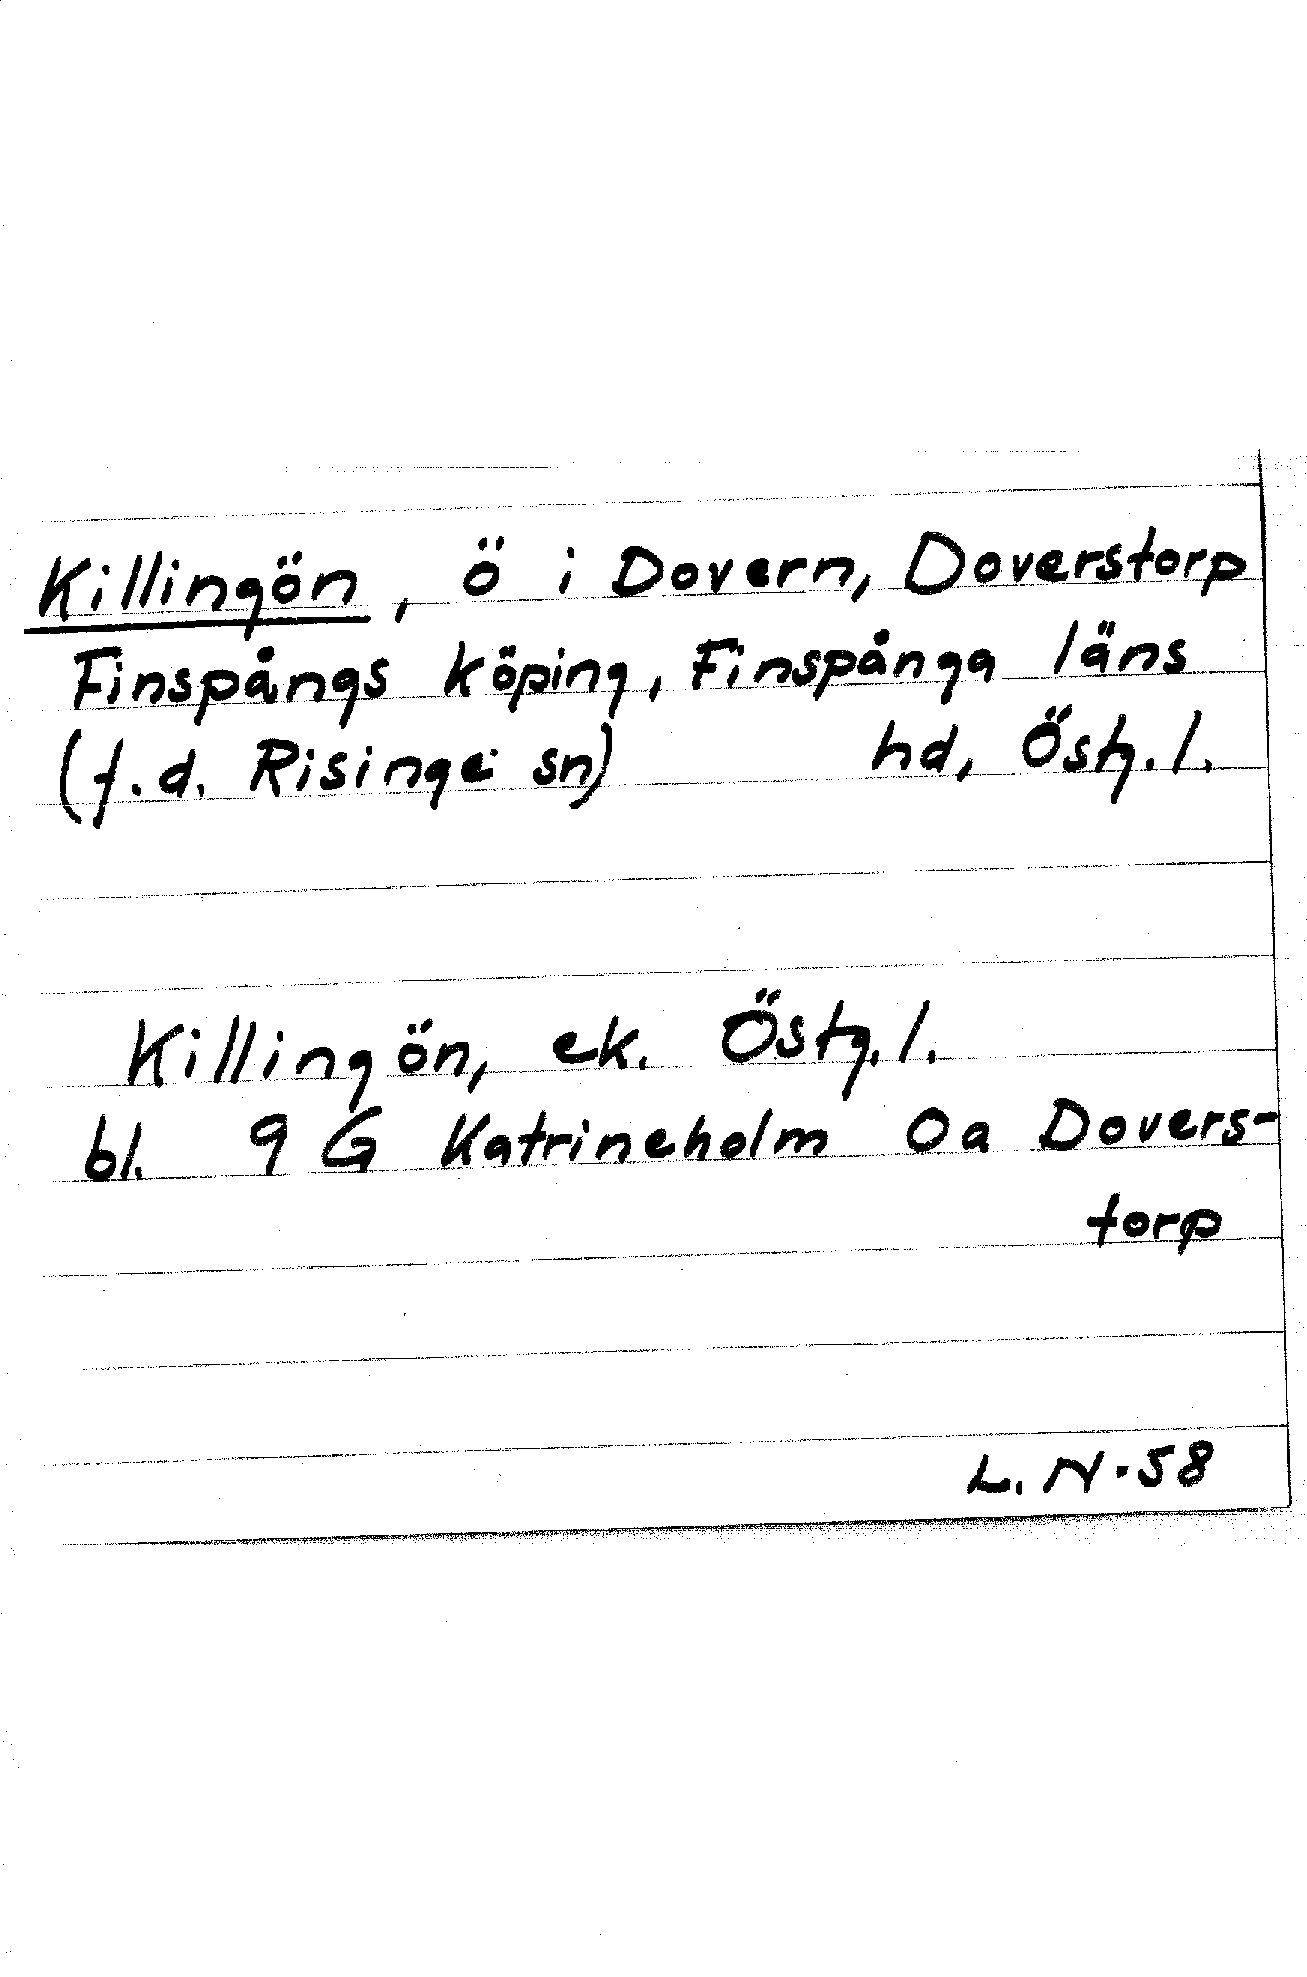 Killingön, ö i Dovern, Doverstorp
Finspångs köping, Finspånga läns
(f.d. Risinge sn) hd, Östg.l.
Killingön, ek. Östg.l.
bl. 9 G Katrineholm 0a Dovers-
torp
L. N. 58